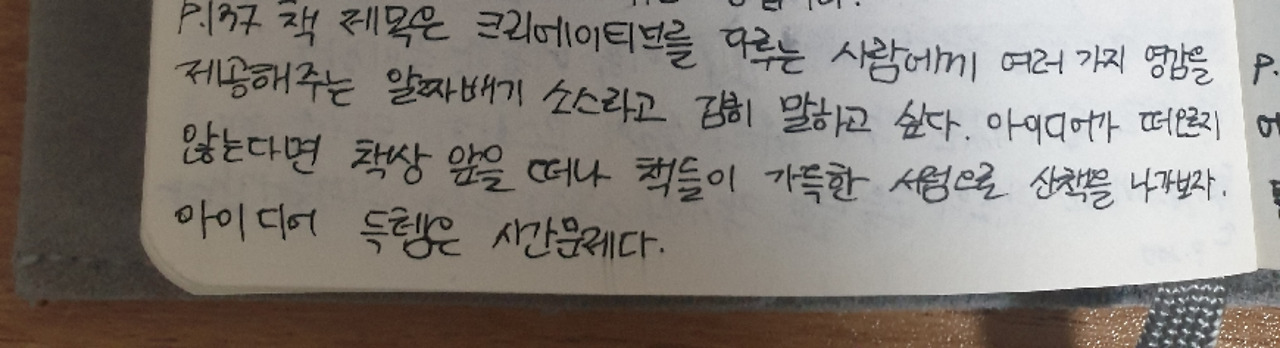 P.137 책 제목은 크리에이티브를 다루는 사람에게 여러 가지 영감을
제공해주는 알짜배기 소스라고 감히 말하고 싶다. 아이디어가 떠오르지
않는다면 책상 앞을 떠나 책들이 가득한 서점으로 산책을 나가보자.
아이디어 득템은 시간문제다.
P.